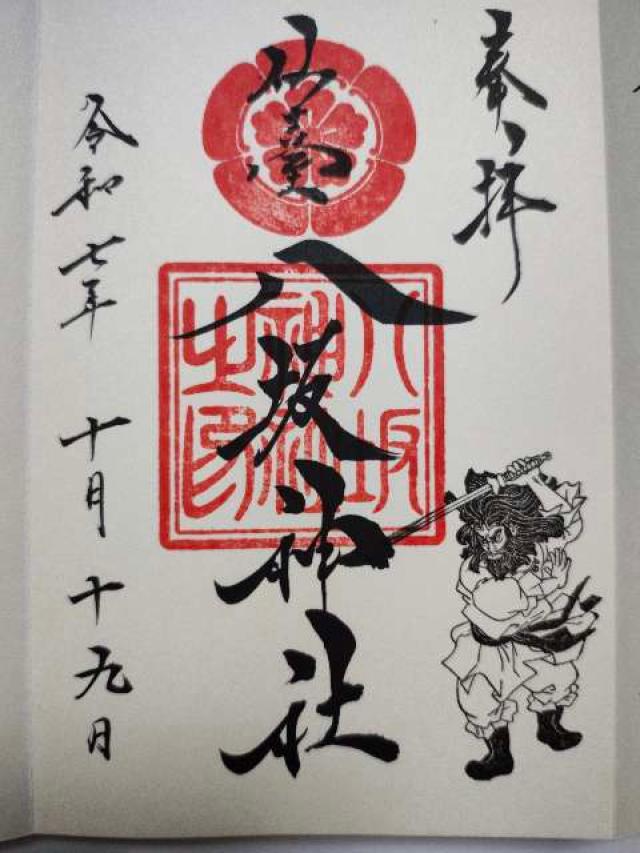 奉拝
仙臺
八坂神社
八坂
神社
之印
令和七年 十月 十九日